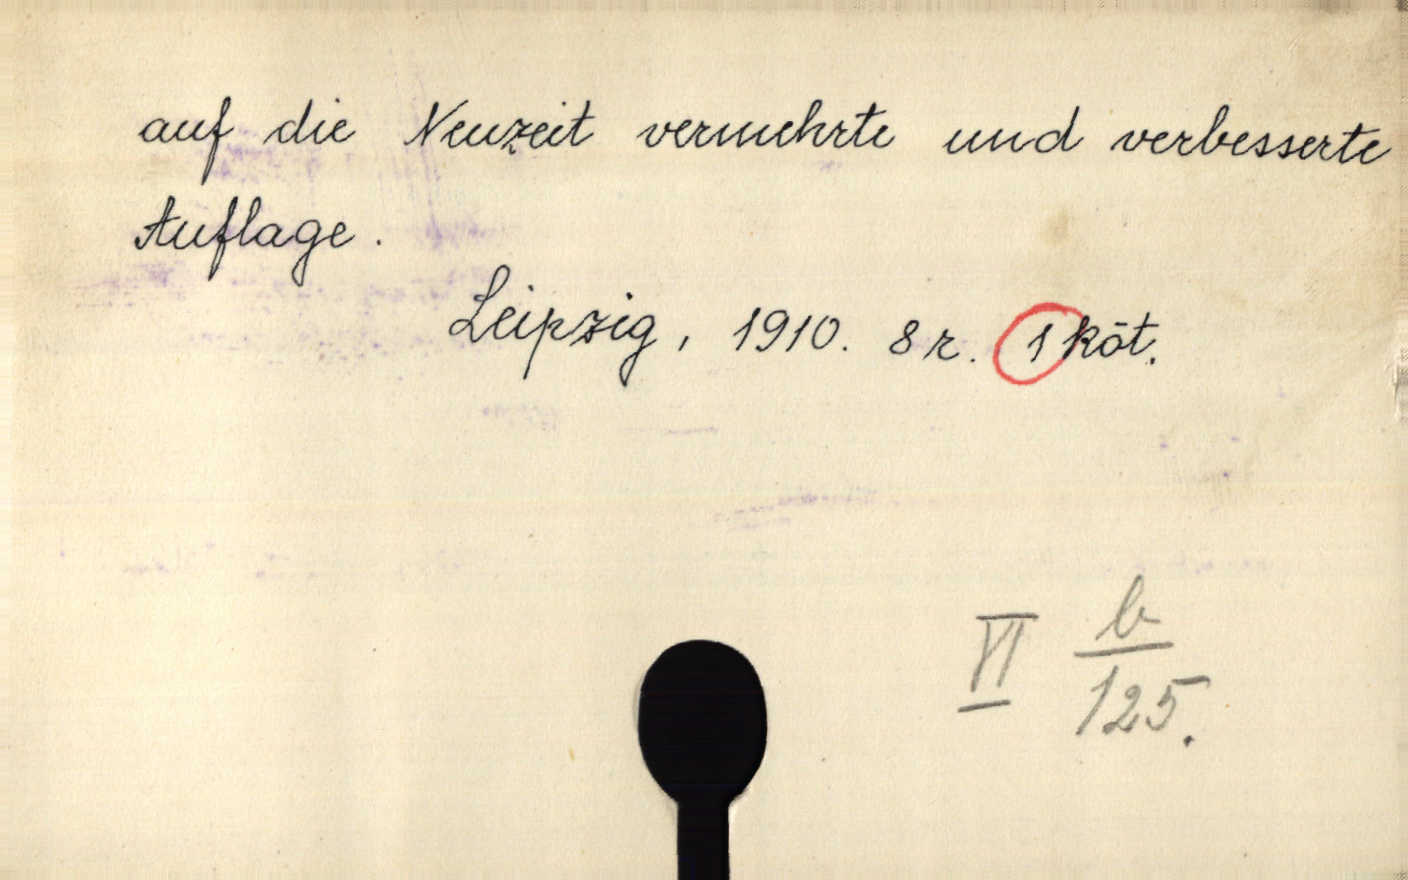 auf die Neuzeit vermehrte und verbesserte
Auflage.
Leipzig, 1910. 8 r. 1 köt.
VI b/125.